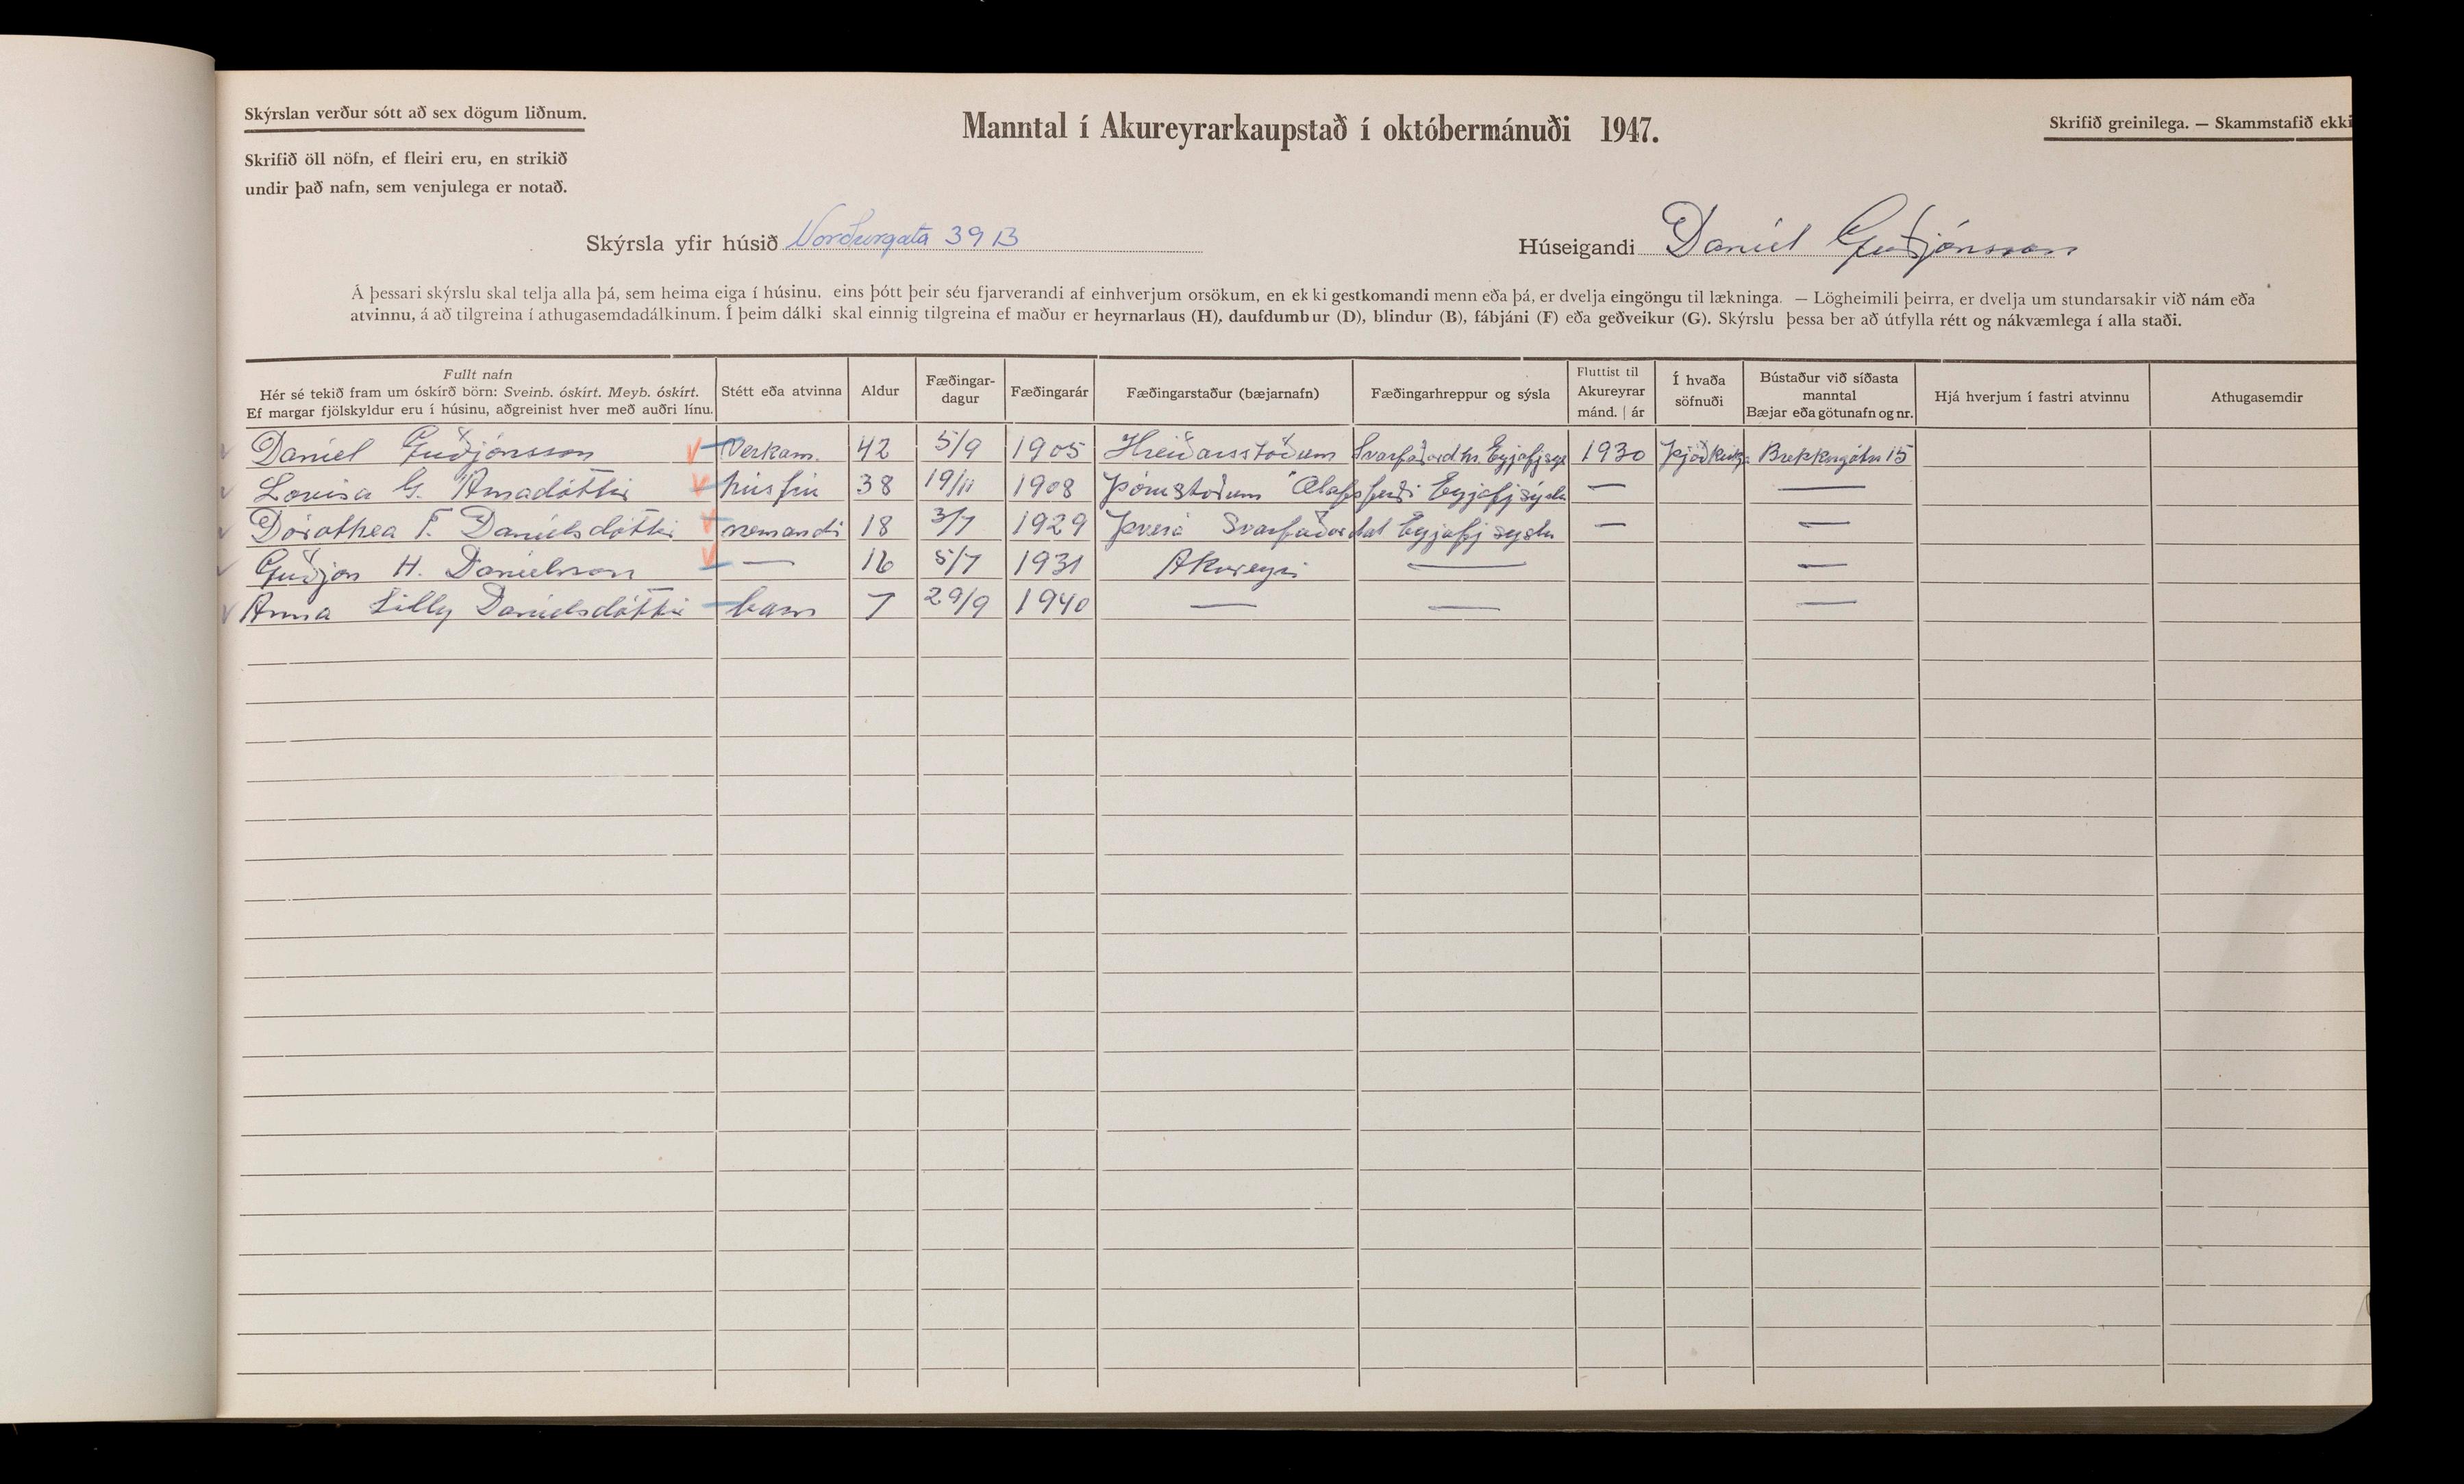 Skýrslan verður sótt að sex dögum liðnum.
Manntal í Akureyrarkaupstað í októbermánuði 1947.
Skrifið greinilega. — Skammstafið ekki
Skrifið öll nöfn, ef fleiri eru, en strikið
undir það nafn, sem venjulega er notað.
Skýrsla yfir húsið Norðurgata 39 B
Húseigandi Daníel Guðjónsson
Á þessari skýrslu skal telja alla þá, sem heima eiga í húsinu, eins þótt þeir séu fjarverandi af einhverjum orsökum, en ekki gestkomandi menn eða þá, er dvelja eingöngu til lækninga. — Lögheimili þeirra, er dvelja um stundarsakir við nám eða
atvinnu, á að tilgreina í athugasemdadálkinum. Í þeim dálki skal einnig tilgreina ef maður er heyrnarlaus (H), daufdumbur (D), blindur (B), fábjáni (F) eða geðveikur (G). Skýrslu þessa ber að útfylla rétt og nákvæmlega í alla staði.
Fullt nafn
Hér sé tekið fram um óskírð börn: Sveinb. óskírt. Meyb. óskírt.
Ef margar fjölskyldur eru í húsinu, aðgreinist hver með auðri línu.
Stétt eða atvinna
Aldur
Fæðingar-
dagur
Fæðingarár
Fæðingarstaður (bæjarnafn)
Fæðingarhreppur og sýsla
Fluttist til
Akureyrar
mánd. | ár
Í hvaða
söfnuði
Bústaður við síðasta
manntal
Bæjar eða götunafn og nr.
Hjá hverjum í fastri atvinnu
Athugasemdir
Daníel Guðjónsson Verkam. 42 5/9 1905 Hreiðarsstöðum Svarfaðardhr. Eyjafjsys 1930 Þjóðkirkj. Brekkugötu 15
Lovisa G. Arnadóttir húsfrú 38 19/11 1908 Ólafsfirði Eyjafjsýslu — —
Dórothea F. Daníelsdóttir nemandi 18 3/7 1929 Þverá Svarfaðardal Eyjafjsyslu — —
Guðjón H. Daníelsson — 16 5/7 1931 Akureyri — —
Anna Lilly Daníelsdóttir barn 7 29/9 1940 — — —